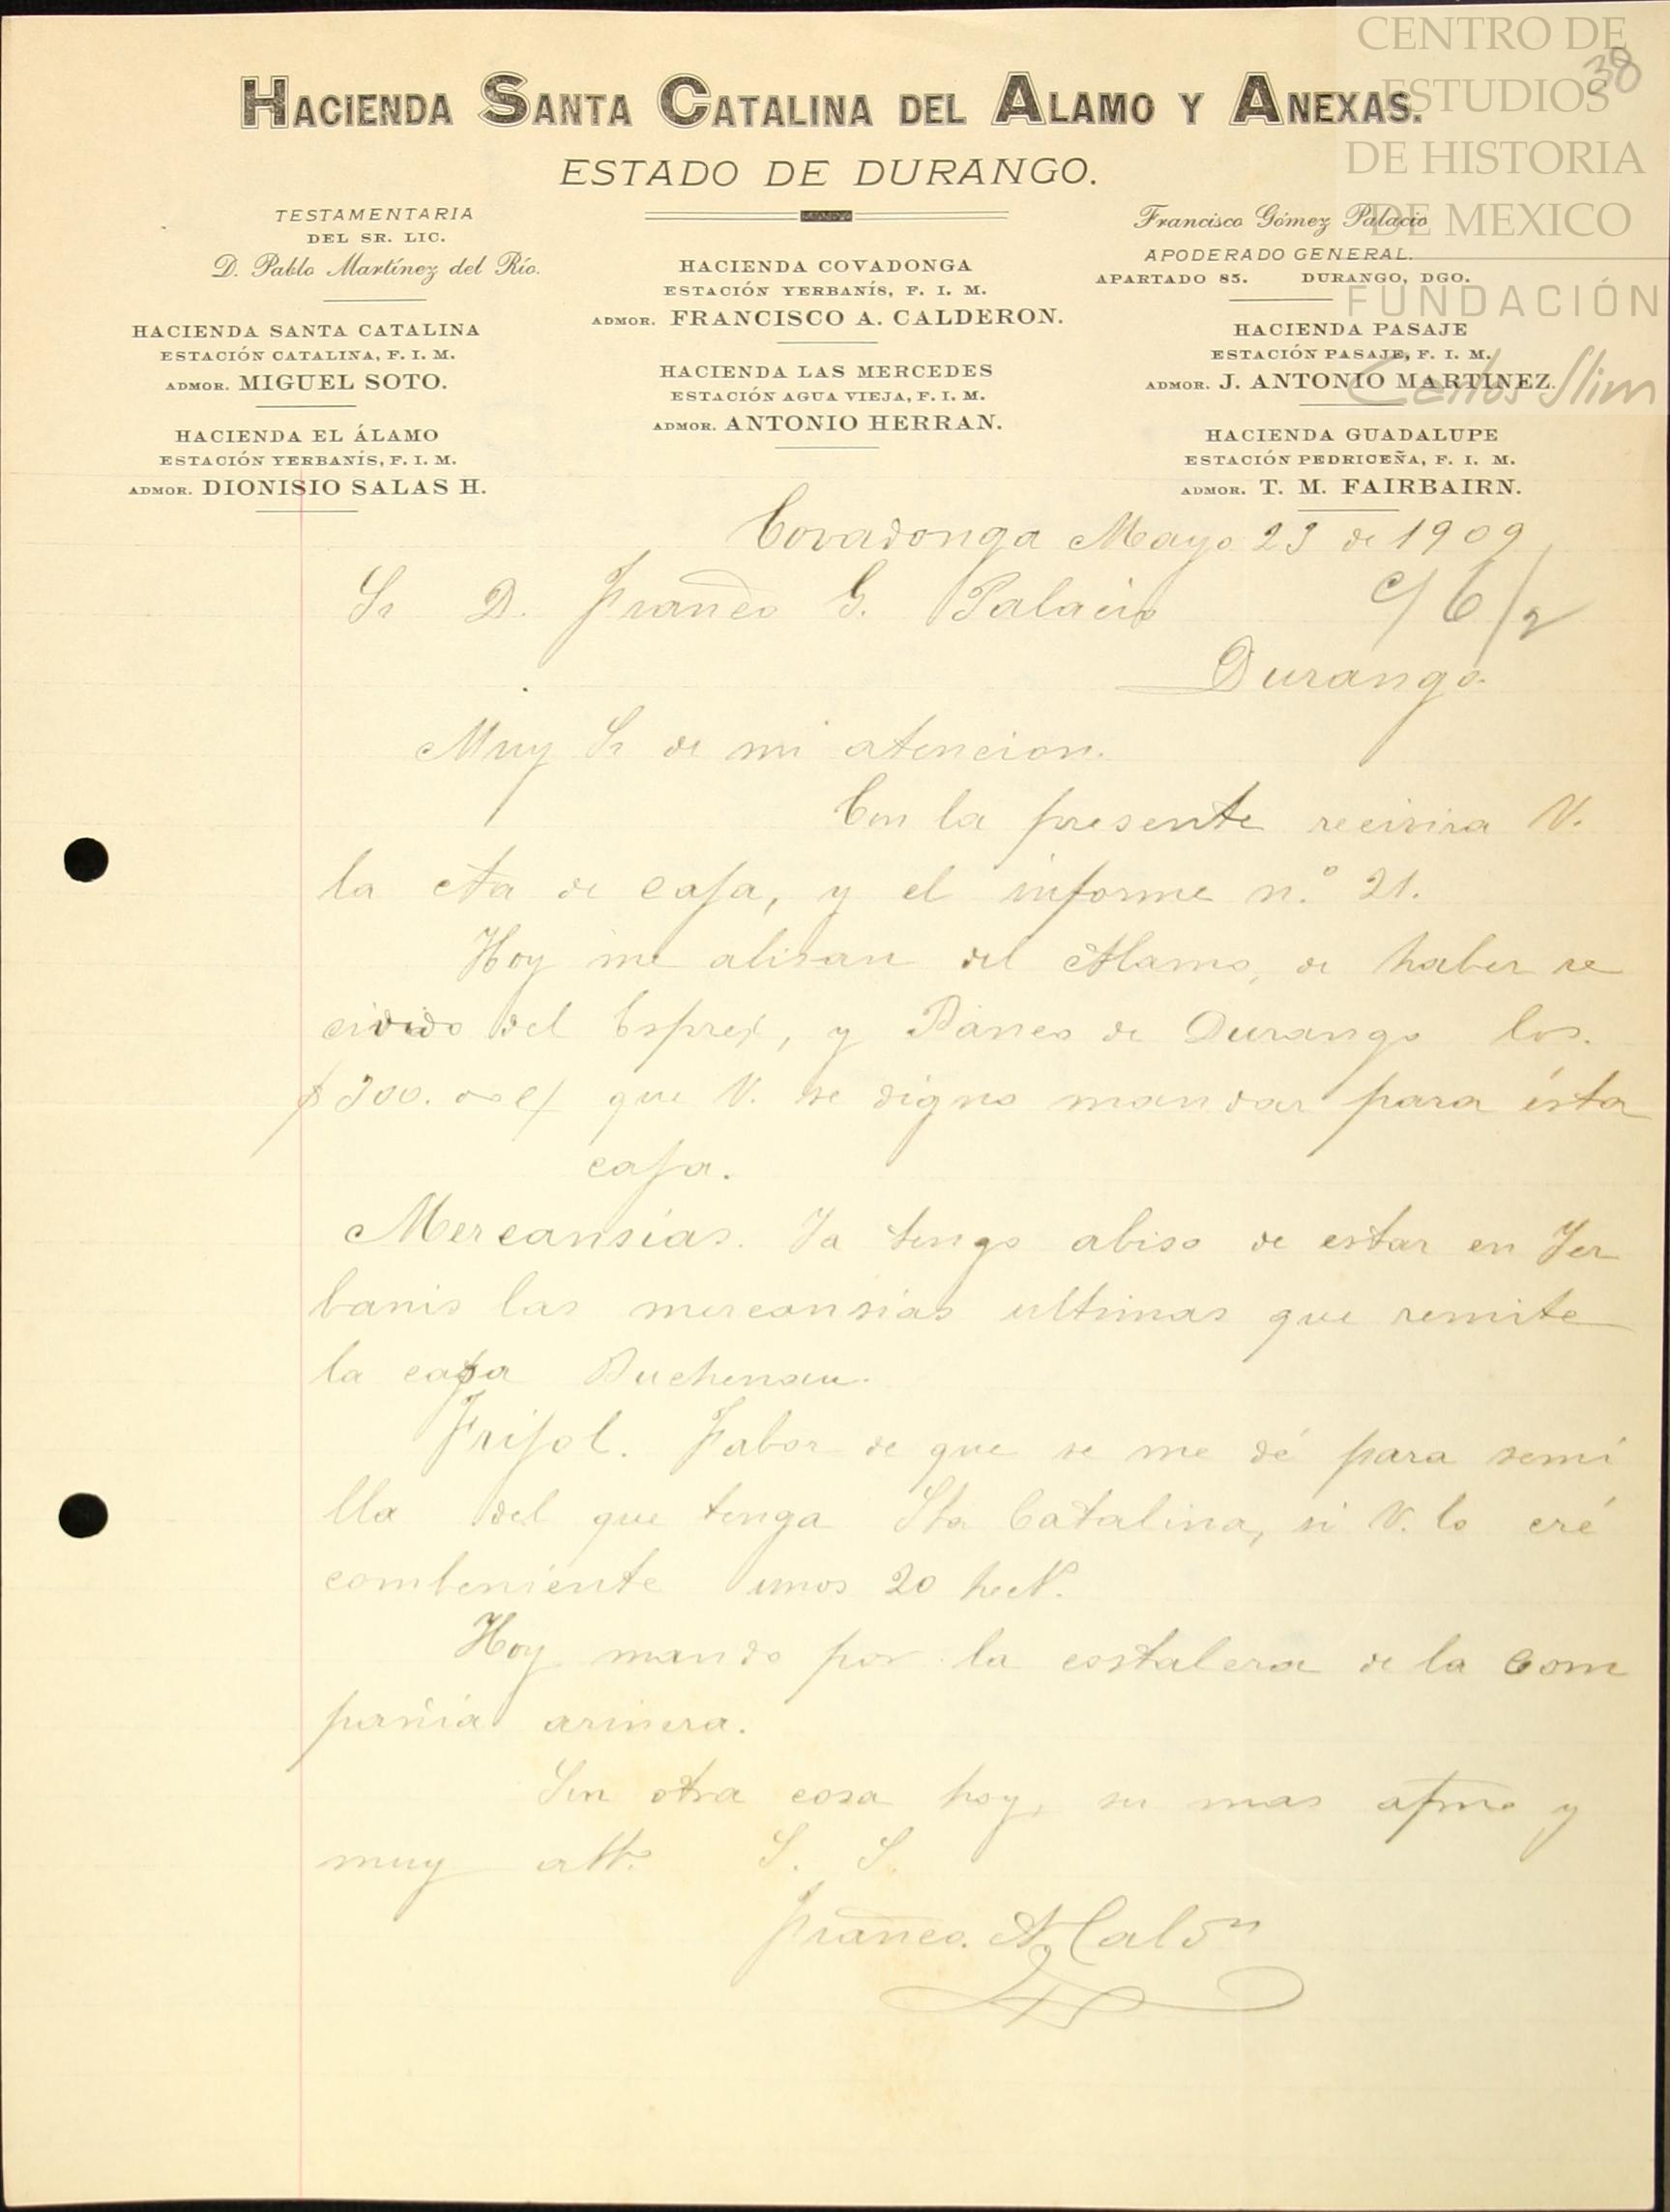 CENTRO DE
ESTUDIOS
DE HISTORIA
DE MEXICO
FUNDACIÓN
Carlos Slim
38
HACIENDA SANTA CATALINA DEL ALAMO Y ANEXAS.
ESTADO DE DURANGO.
TESTAMENTARIA
DEL SR. LIC.
D. Pablo Martínez del Río.
HACIENDA SANTA CATALINA
ESTACIÓN CATALINA, F. I. M.
ADMOR. MIGUEL SOTO.
HACIENDA EL ÁLAMO
ESTACIÓN YERBANÍS, F. I. M.
ADMOR. DIONISIO SALAS H.
HACIENDA COVADONGA
ESTACIÓN YERBANÍS, F. I. M.
ADMOR. FRANCISCO A. CALDERON.
HACIENDA LAS MERCEDES
ESTACIÓN AGUA VIEJA, F. I. M.
ADMOR. ANTONIO HERRAN.
Francisco Gómez Palacio
APODERADO GENERAL.
APARTADO 85. DURANGO, DGO.
HACIENDA PASAJE
ESTACIÓN PASAJE, F. I. M.
ADMOR. J. ANTONIO MARTINEZ.
HACIENDA GUADALUPE
ESTACIÓN PEDRICEÑA, F. I. M.
ADMOR. T. M. FAIRBAIRN.
Covadonga Mayo 23 de 1909
Sr D. Franco G. Palacio
Durango.
Muy Sr de mi atencion.
Con la presente recivira V.
la cta de caja, y el informe n.º 21.
Hoy me alisan del Alamo, de haber re
civido del Espres, y Banco de Durango los.
que V. se digno mandar para ésta
caja.
Mercansías. Ya tengo abiso de estar en Yer
banis las mercansías ultimas que remite
la casa Buchenau.
Frijol. Fabor de que se me dé para semi
lla del que tenga Sta Catalina, si V. lo cré
combeniente unos 20 hect.
Hoy mando por la costalera de la Com
pañía arinera.
Sin otra cosa hoy, su mas afmo y
muy atto S. S.
Franco. A. Calon